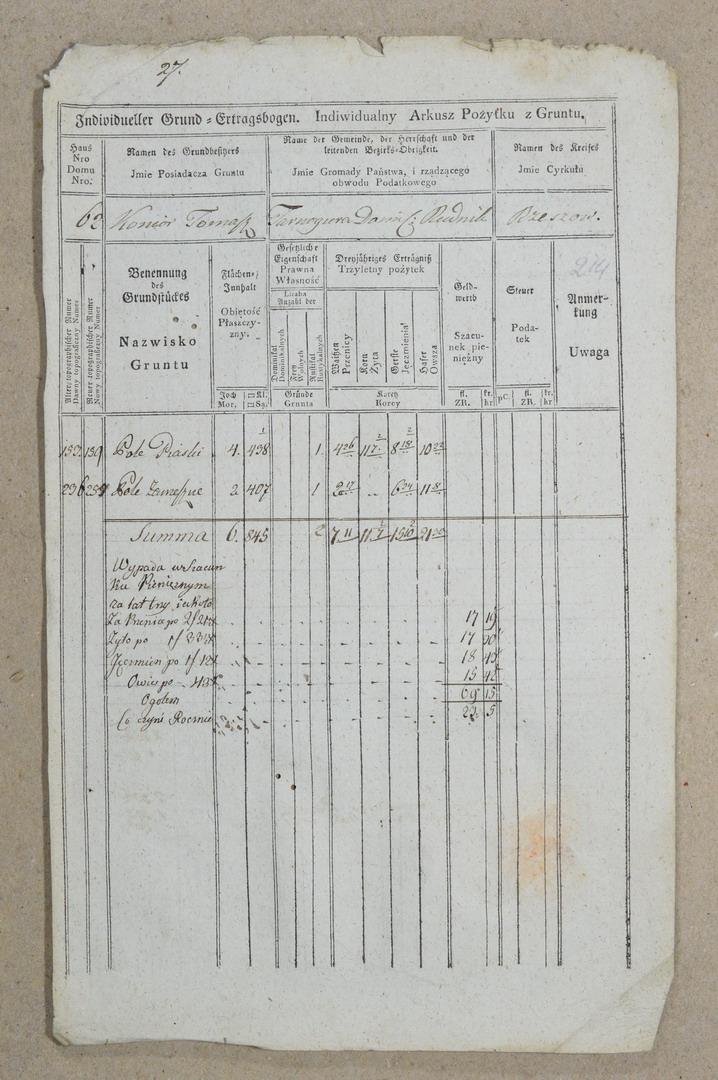 27.
Individueller Grund = Ertragsbogen. Indiwidualny Arkusz Pożytku z Gruntu.
Haus Nro Domu Nro.
Namen des Grundbesitzers
Jmie Posiadacza Gruntu
Name der Gemeinde, der Herrschaft und der
leitenden Bezirks-Obrigkeit.
Jmie Gromady Państwa, i rządzącego
obwodu Podatkowego
Namen des Kreises
Jmie Cyrkułu
62 Konior Tomasz Tarnogura Rudnik Rzeszow.
214
Alter topographischer Numer
Dawny topograficzny Numer
Neuer topographischer Numer
Nowy topograficzny Numer
Benennung
des
Grundstückes
Nazwisko
Gruntu
Flächen-
Innhalt
Obiętość
Płaszczy-
zny.
Joch Mor.
□Kl. □Są.
Gesetzliche
Eigenschaft
Prawna
Własność
Liczba
Anzahl der
Dominikal
Dominikalnych
Frey
Wolnych
Rustikal
Rustykalnych
Gründe
Grunta
Dreyjähriges Erträgniß
Trzyletny pożytek
Waitzen
Pszenicy
Korn
Żyta
Gerste
Jęczmienia
Hafer
Owsa
Koretz
Korcy
Geld-
werth
Szacu-
nek pie-
niężny
fl. ZR.
kr. kr
Steuer
Poda-
tek
pC.
fl. ZR.
kr. kr
Anmer-
kung
Uwaga
159 Pole Piaski 4. 438 1
Pole 2 407 1
Summa 6. 845 2
Wypada w Szacun
ku Pienieznym
za lat try iakoto
Za Pszenice po 17 19
Zyto po 17
Jęczmien po 18
Owies po 15
Ogołem 69 15
Co czyni Rocznie 23 5